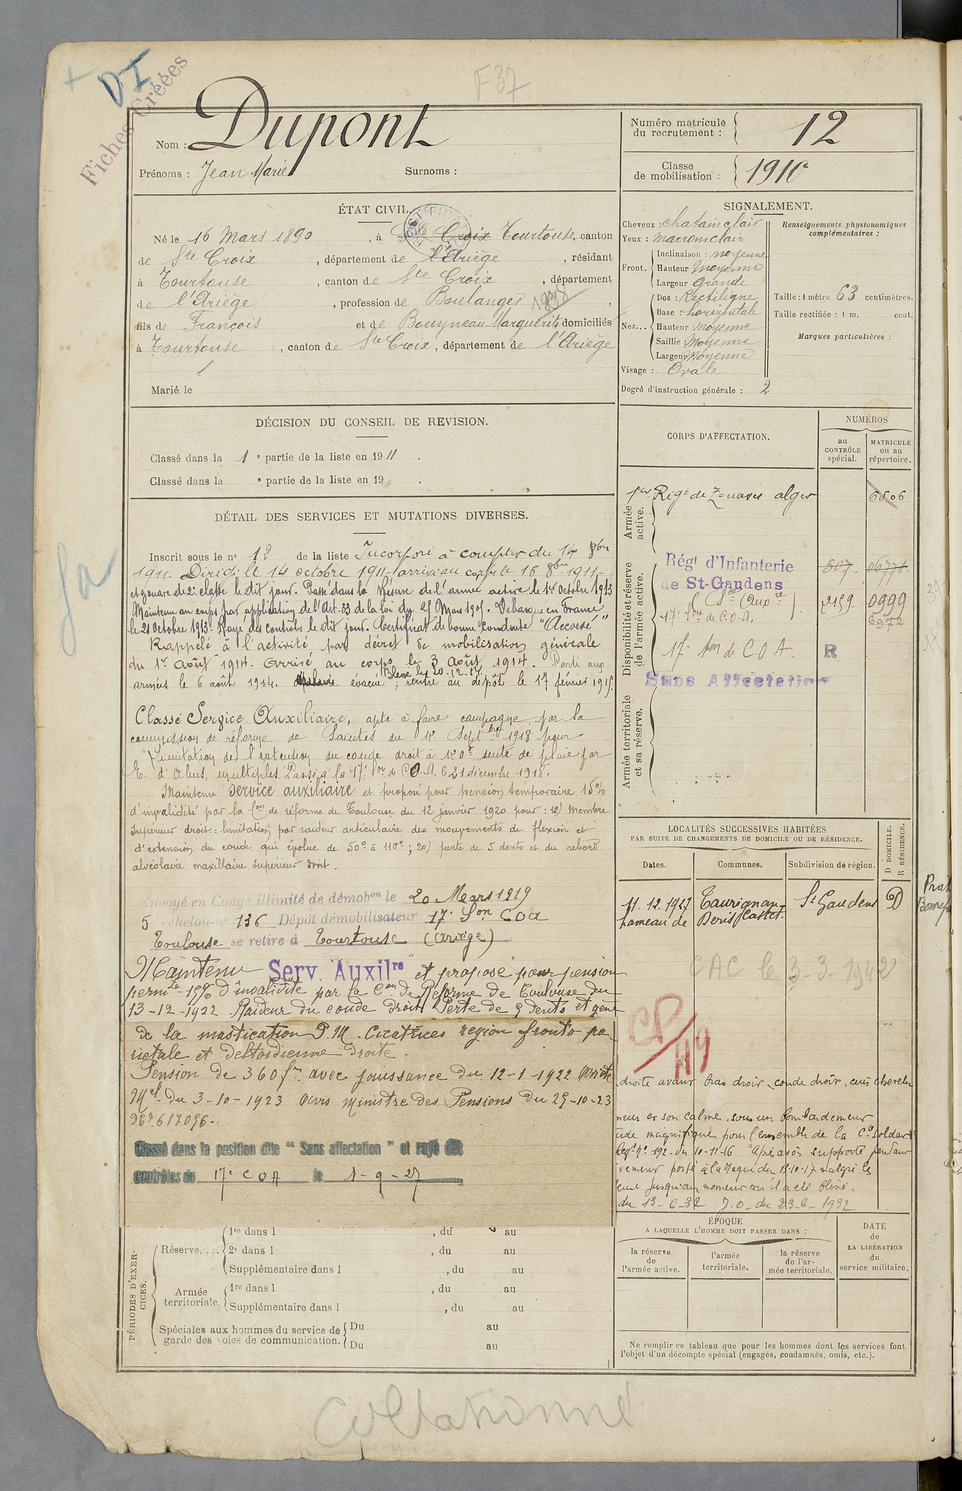 F37
DI
Fiches Créées
Nom : Dupont
Prénoms : Jean Marie Surnoms :
Numéro matricule
du recrutement : 12
Classe
de mobilisation : 1910
ÉTAT CIVIL.
Né le 16 Mars 1890, à Ste Croix Tourtouse, canton
de Ste Croix, département de l'Ariège, résidant
à Tourtouse, canton de Ste Croix, département
de l'Ariège, profession de Boulanger
fils de François et de Bouyneau Marguerite domiciliés
à Tourtouse, canton de Ste Croix, département de l'Ariège
Marié le
SIGNALEMENT.
Cheveux : chatain clair
Yeux : marron clair
Front. Inclinaison : moyenne
Hauteur moyenne
Largeur grande
Nez... Dos : Rectiligne
Base : horizontale
Hauteur : moyenne
Saillie : Moyenne
Largeur moyenne
Visage : Ovale
Degré d'instruction générale : 2
Renseignements physionomiques
complémentaires :
Taille : 1 mètre 63 centimètres.
Taille rectifiée : 1 m. cent.
Marques particulières :
DÉCISION DU CONSEIL DE REVISION.
Classé dans la 1e partie de la liste en 1911.
Classé dans la e partie de la liste en 19 .
DÉTAIL DES SERVICES ET MUTATIONS DIVERSES.
Inscrit sous le no 12 de la liste Incorporé à compter du 14 8bre
1911. Dirigé le 14 octobre 1911 arrivé au corps le 16 8bre 1911
et zouave de 2e classe le dit jour. Passé dans la réserve de l'armée active le 1er octobre 1913
Maintenu au corps par application de l'Art. 33 de la loi du 21 Mars 1905. en France
le 21 octobre 1913. Rayé des contrôles le dit jour. Certificat de bonne conduite "Accordé"
Rappelé à l'activité par décret de mobilisation générale
du 1er août 1914. Arrivé au corps le 3 août 1914. Parti aux
armées le 6 août 1914. évacué ; rentré au dépôt le 17 février 191
Classé Service Auxiliaire, apte à faire campagne par la
commission de réforme de Saintes du Septbre 1918 pour
"limitation de l'extension du coude droit à suite de plaie par
E. d'Obus, multiples. Passé à la 17e Son de C.O.A. le 21 décembre 1918.
Maintenu service auxiliaire et proposé pour pension temporaire 15%
d'invalidité par la Con de réforme de Toulouse du 12 janvier 1920 pour : 1o) Membre
supérieur droit : limitation par raideur articulaire des mouvements de flexion et
d'extension du coude qui évolue de 50o à 110o ; 2o) perte de 5 dents et du rebord
alvéolaire maxillaire supérieur droit.
Envoyé en Congé illimité de démobon le 20 Mars 1919
5 échelon no 136 Dépôt démobilisateur 17e Son COA
Toulouse se retire à Tourtouse (Ariège)
Maintenu Serv. Auxilre et proposé pour pension
permte 15% d'invalidité par la Con de Réforme de Toulouse du
13-12-1922 Raideur du coude droit Perte de 9 dents et gêne
de la mastication P.M. Cicatrices région fronto pa-
riétale et deltoïdienne droite.
Pension de 360 fr. avec jouissance du 12-1-1922 Arrêté
Mel du 3-10-1923 avis Ministre des Pensions du 29-10-23
617096.
Classé dans la position dite "Sans affectation" et rayé des
contrôles du 17e COA le 1-9-27
CORPS D'AFFECTATION.
NUMÉROS
au
CONTRÔLE
spécial.
MATRICULE
ou au
répertoire.
Armée
active.
1er Régt de Zouaves alger 6506
Disponibilité et réserve
de l'armée active.
Régt d'Infanterie
de St-Gaudens 807 0677
2159 0999
17e Son de C.O.A. 6972
17e Son de C.O.A. R
Sans Affectation
Armée territoriale
et sa réserve.
LOCALITÉS SUCCESSIVES HABITÉES
PAR SUITE DE CHANGEMENTS DE DOMICILE OU DE RÉSIDENCE.
Dates. Communes. Subdivision de région.
D DOMICILE.
R RÉSIDENCE.
11.12.1927 Taurignan- St Gaudens D
hameau de Castet
CAC le 3-3-1942
CP/49
droite avant bras droit, coude droit, cuir chevelu
et son calme sous un bombardement
magnifique pour l'ensemble de la Cie Soldat
192 du 10-11-16 "Après avoir supporté
13-10-17 malgré
jusqu'au moment où il a été blessé.
du 13-6-32 J.O. du 23-6-1932
ÉPOQUE
À LAQUELLE L'HOMME DOIT PASSER DANS :
la réserve
de
l'armée active.
l'armée
territoriale.
la réserve
de l'ar-
mée territoriale.
DATE
de
LA LIBÉRATION
du
service militaire.
Ne remplir ce tableau que pour les hommes dont les services font
l'objet d'un décompte spécial (engagés, condamnés, omis, etc.).
PÉRIODES D'EXER-
CICES.
Réserve.... 1re dans l , du au
2e dans l , du au
Supplémentaire dans l , du au
Armée
territoriale. 1re dans l , du au
Supplémentaire dans l , du au
Spéciales aux hommes du service de
garde des voies de communication. Du au
Du au
Collationné